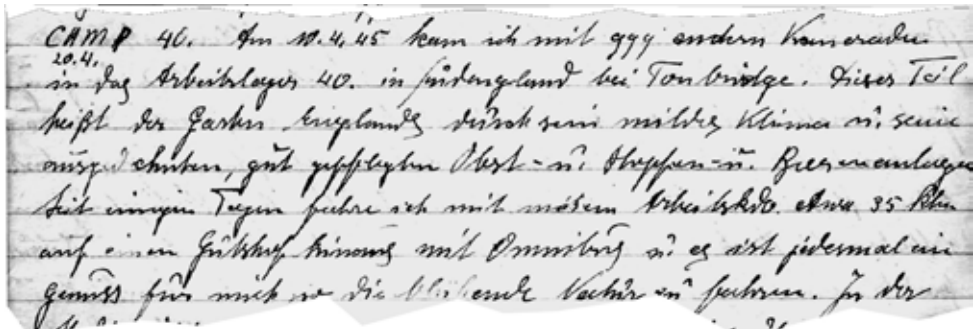 CAMP 40. Am 10.4.45 kam ich mit 999 andern Kameraden
20.4.
in das Arbeitslager 40. in Südengland bei Tonbridge. Dieser Teil
heißt der Garten Englands durch sein mildes Klima u. seine
ausgedehnten, gut gepflegten Obst- u. Hopfen- u. Beerenanlagen
Seit einigen Tagen fahre ich mit mösem Arbeitskdo. etwa 35 Km
auf einen Gutshof hinaus mit Omnibus u. es ist jedesmal ein
genuss für mich so die blühende Natur zu fahren. In der